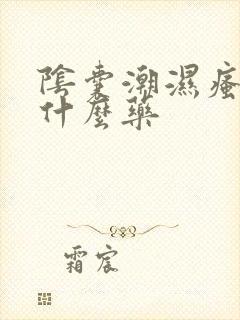 陰囊潮濕瘙
什麼藥
霜宸